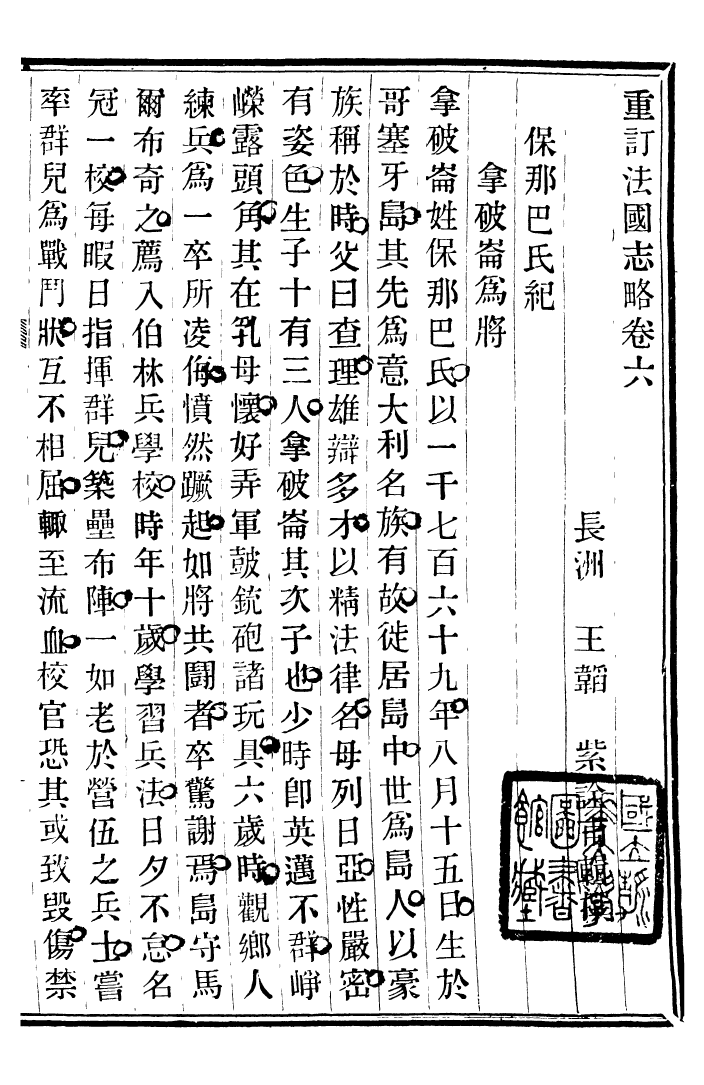 重訂法國志略卷六
長洲 王韜 紫詮
保那巴氏紀
拿破崙爲將
拿破崙姓保那巴氏以一千七百六十九年八月十五日生於
哥塞牙島其先爲意大利名族有故徙居島中世爲島人以豪
族稱於時父曰查理雄辯多才以精法律名母列日亞性嚴密
有姿色生子十有三人拿破崙其次子也少時卽英邁不群崢
嶸露頭角其在乳母懷好弄軍鼓銃砲諸玩具六歲時觀鄉人
練兵爲一卒所凌侮憤然蹶起如將共鬪者卒驚謝焉島守馬
爾布奇之薦入伯林兵學校時年十歲學習兵法日夕不怠名
冠一校每暇日指揮群兒築壘布陣一如老於營伍之兵士嘗
率群兒爲戰鬥狀互不相屈輙至流血校官恐其或致毀傷禁
國立
圖書
館藏